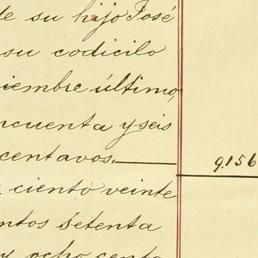 de su hijo José
su codicilo
iembre último,
ncuenta y seis
centavos. 9.156
ciento veinte
ntos setenta
y ocho cento